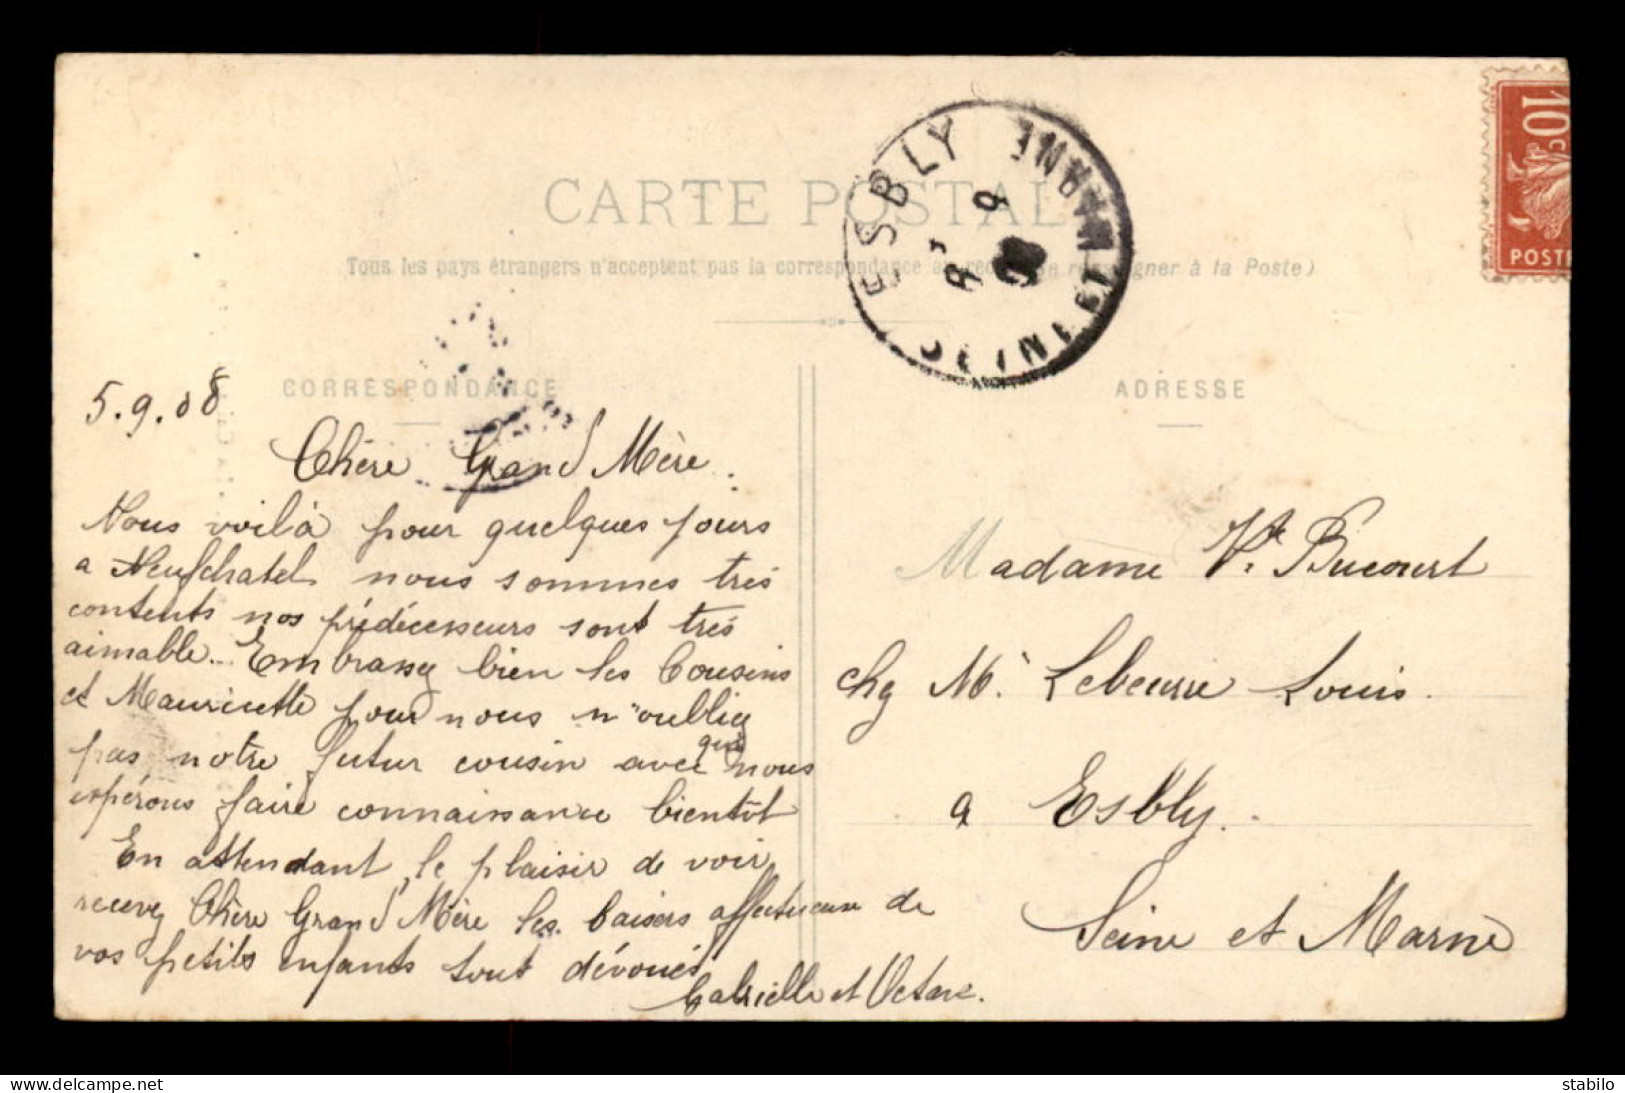 CARTE POSTALE
Tous les pays étrangers n'acceptent pas la correspondance au recto (Se renseigner à la Poste)
CORRESPONDANCE
ADRESSE
10 c
POSTE
ESBLY
SEINE ET MARNE
5.9.08
Chère Grand Mère.
Nous voilà pour quelques jours
a Neufchatel nous sommes tres
contents nos prédécesseurs sont tres
aimable. Embrassez bien les Cousins
et Mauricette pour nous n'oubliez
pas notre futur cousin avec qui nous
espérons faire connaissance bientôt
En attendant, le plaisir de voir
recevez Chère Grand Mère les baisers affectueux de
vos petits enfants tout dévoués
Gabrielle et Octave.
Madame Ve. Bucourt
chez Mr. Lebeurre Louis.
a Esbly.
Seine et Marne
www.delcampe.net
stabilo